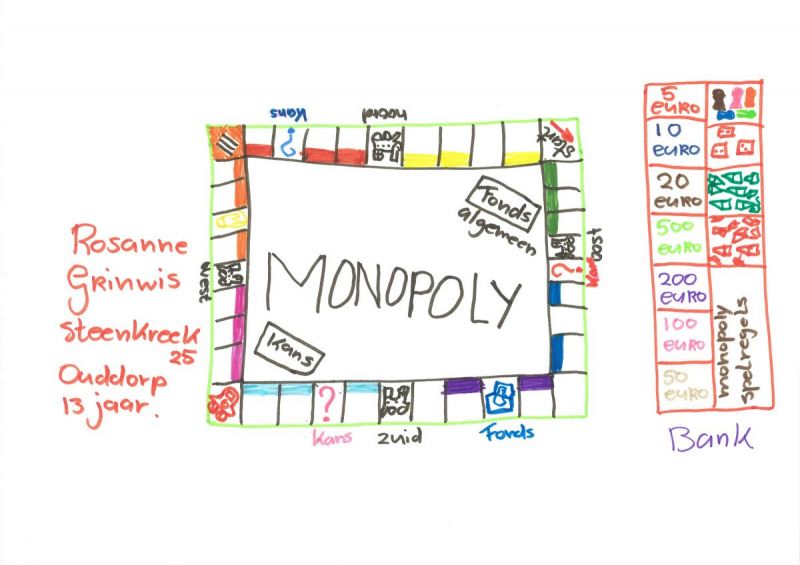 Rosanne
Grinwis
Steenkreek
25
Ouddorp
13 jaar.
Kans
noord
?
start
Fonds
algemeen
oost
?
Kans
west
MONOPOLY
Kans
?
Kans
zuid
Fonds
5
euro
10
euro
20
euro
500
euro
200
euro
100
euro
50
euro
monopoly
spelregels
Bank